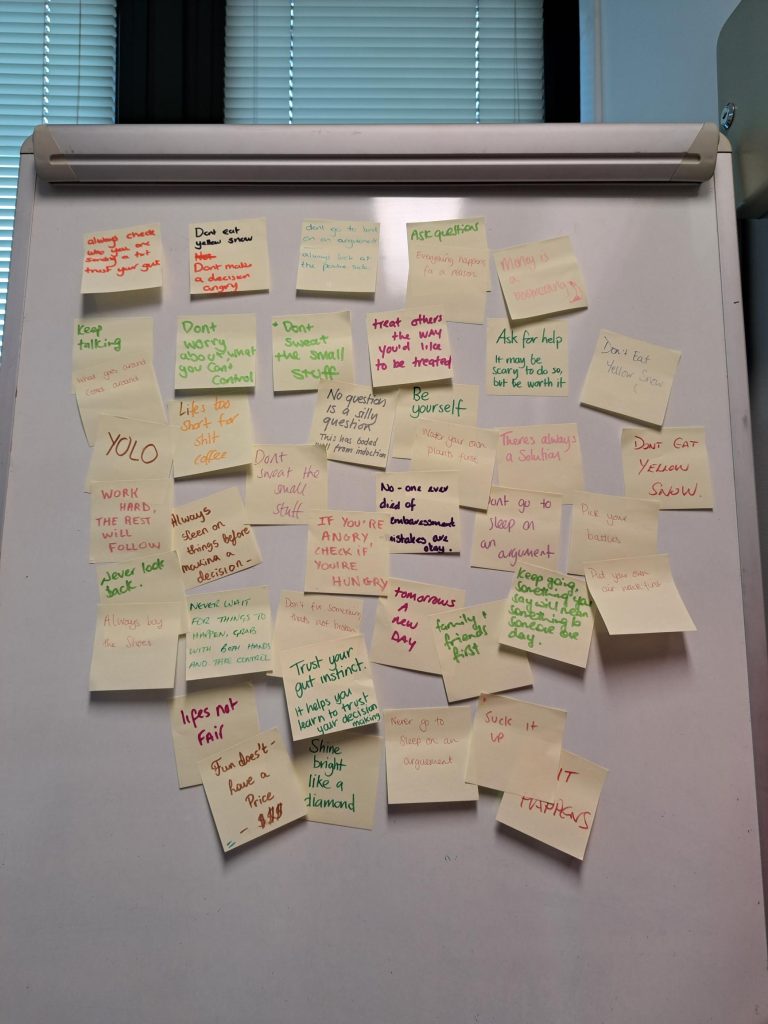 always check
who you are
sending a txt
trust your gut
Dont eat
yellow snow
Dont make
a decision
angry
dont go to bed
on an arguement
always look at
the positive side
ASk questions
Everything happens
for a reason
Money is
a
boomerang
Keep
talking
What goes around
comes around
Dont
worry
about what
you cant
control
Dont
Sweat
the small
stuff
treat others
the WAY
you'd like
to be treated
Ask for help
It may be
scary to do so,
but be worth it
Don't Eat
Yellow Snow
YOLO
Lifes too
short for
shit
coffee
No question
is a silly
question
This has boded
well from induction
Be
yourself
Water your own
plants first
Theres always
a Solution
DONT EAT
YELLOW
SNOW.
WORK
HARD,
THE REST
WILL
FOLLOW
Always
sleep on
things before
making a
decision -
Dont
Sweat the
small
stuff
IF YOU'RE
ANGRY,
CHECK IF
YOU'RE
HUNGRY
No-one ever
died of
embarressment
mistakes are
okay.
Dont go to
sleep on
an
argument
Pick your
battles
Never look
back.
Always buy
the Shoes
NEVER WAIT
FOR THINGS TO
HAPPEN, GRAB
WITH BOTH HANDS
AND TAKE CONTROL
Don't fix something
thats not broken
tomorrows
A
new
DAY
family +
friends
first
Keep going,
something you
say will mean
something to
someone one
day.
Put your own
mask first
Trust your
gut instinct.
It helps you
learn to trust
your decision
making
lifes not
FAIR
Fun doesn't
have a
Price
- $$$
Shine
bright
like a
diamond
Never go to
Sleep on an
arguement
Suck it
up
IT
HAPPENS